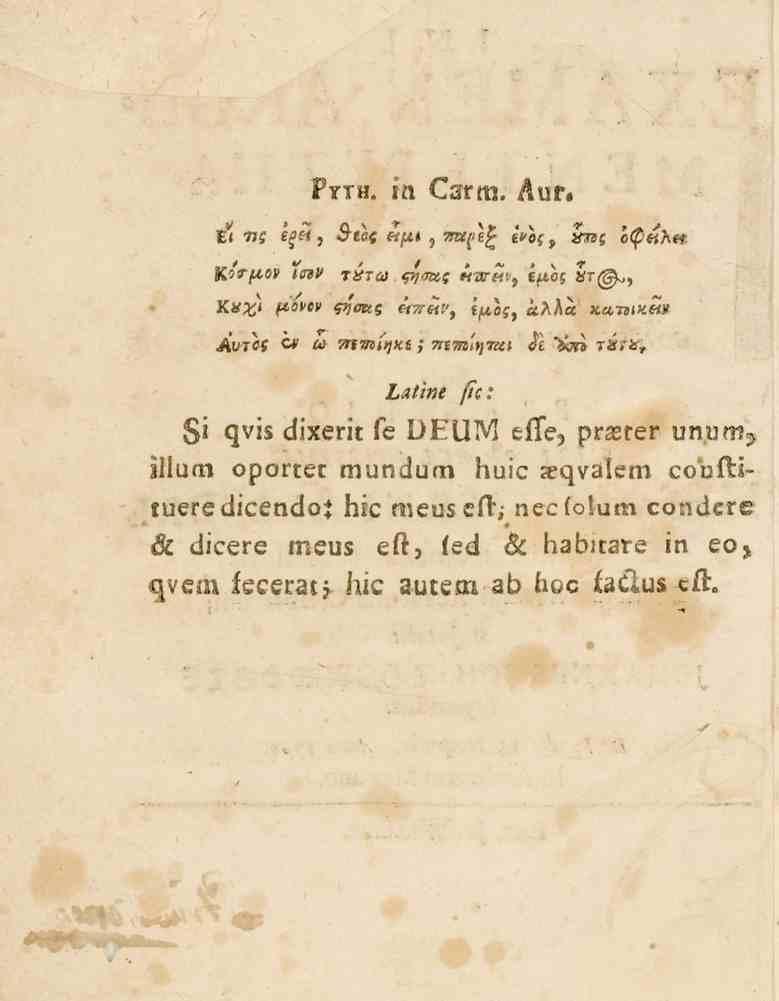 PYTH. in Carm. Aur.
Εἴ τις ἐρεῖ, θεὸς εἰμι, παρὲξ ἑνὸς, ὗτος ὀφείλει
Κόσμον ἴσον τύτω ςήσας εἰπεῖν, ἐμὸς ὗτος,
Κυχὶ μόνον ςήσας εἰπεῖν, ἐμὸς, ἀλλὰ κατοικεῖν
Αὐτὸς ἐν ᾧ πεποίηκε; πεποίηται δὲ ὑπὸ τύτυ.
Latine ſic:
Si qvis dixerit ſe DEUM eſſe, præter unum,
illum oportet mundum huic æqvalem conſti-
tuere dicendo: hic meus eſt; nec ſolum condere
& dicere meus eſt, ſed & habitare in eo,
qvem fecerat; hic autem ab hoc factus eſt.